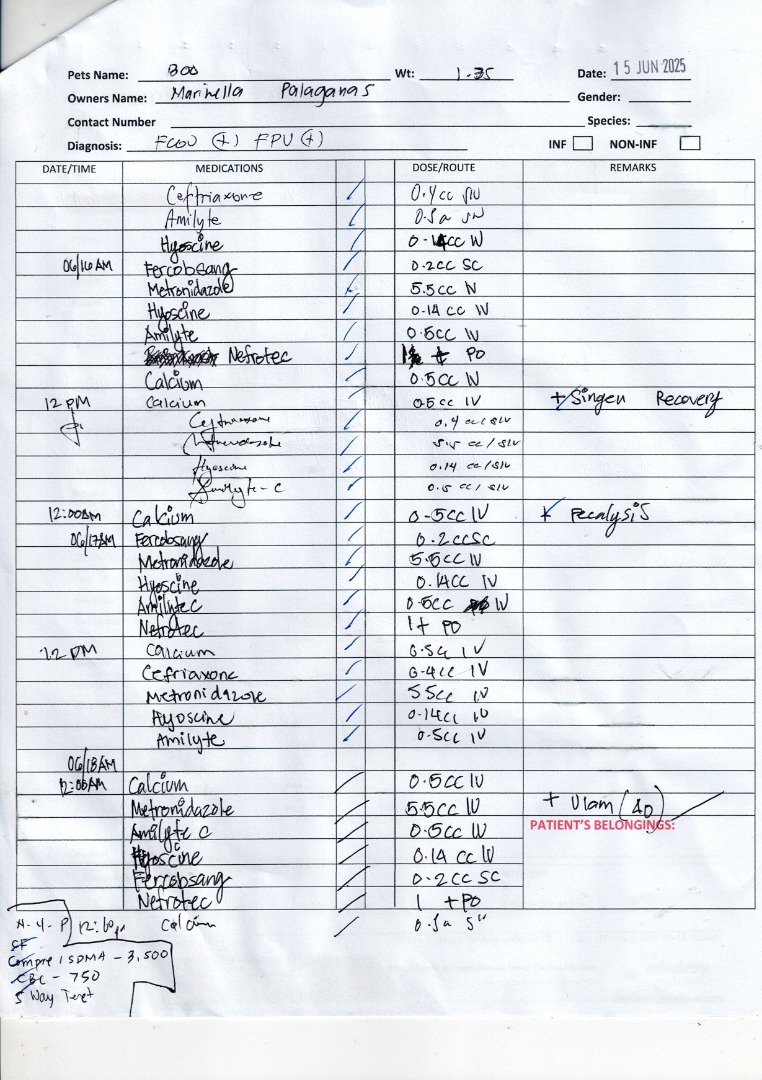 Pets Name: BOO Wt: 1.35 Date: 15 JUN 2025
Owners Name: Marinella Palaganas Gender:
Contact Number Species:
Diagnosis: FCOV (+) FPV (+) INF NON-INF
DATE/TIME MEDICATIONS DOSE/ROUTE REMARKS
Ceftriaxone 0.4cc SIV
Amilyte 0.5cc SIV
Hyoscine 0.14cc IV
06/16 AM Fercobsang 0.2cc SC
Metronidazole 5.5cc IV
Hyoscine 0.14cc IV
Amilyte 0.5cc IV
Nefrotec PO
Calcium 0.5cc IV
12 PM Calcium 0.5cc IV + Singen Recovery
Ceftriaxone 0.4 cc / SIV
Metronidazole 5.5 cc / SIV
Hyoscine 0.14 cc / SIV
Amilyte-C 0.5 cc / SIV
12:00AM Calcium 0-5cc IV Fecalysis
06/17AM Fercobsang 0.2ccSC
Metronidazole 5.5cc IV
Hyoscine 0.14cc IV
Amilytec 0.5cc IV
Nefrotec 1+ PO
12 PM Calcium 0.5cc IV
Cefriaxone 0.4cc IV
Metronidazole 55cc IV
Hyoscine 0.14cc IV
Amilyte 0.5cc IV
06/18AM
12:00AM Calcium 0.5cc IV
Metronidazole 5.5cc IV + Ulam (AD)
Amilyte C 0.5cc IV PATIENT'S BELONGINGS:
Hyoscine 0.14 cc IV
Fercobsang 0.2cc SC
Nefrotec 1 +PO
Calcium
Compre / SDMA - 3,500
CBC - 750
5 Way Test